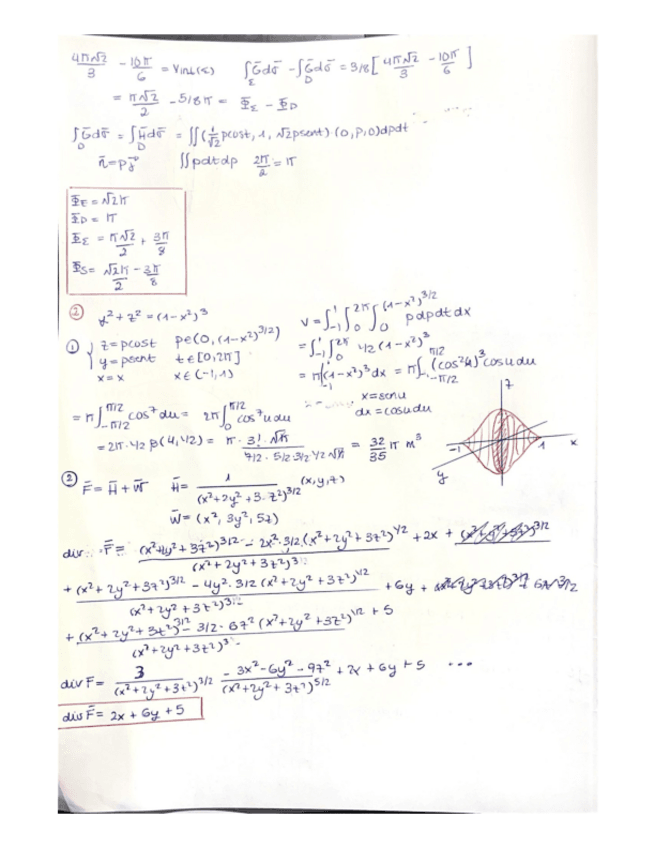 4π√2/3 - 10π/6 = Vint(Σ) ∫_Σ Ḡdσ̄ - ∫_D Ḡdσ̄ = 3/8 [4π√2/3 - 10π/6]
= π√2/2 - 5/8π = Φ_Σ - Φ_D
∫_D Ḡdσ̄ = ∫_D H̄dσ̄ = ∬(1/√2 ρcost, 1, √2ρsent)·(0, ρ, 0)dρdt
n̄ = ρj ∬ρdtdρ 2π/2 = π
Φ_E = √2π
Φ_D = π
Φ_Σ = π√2/2 + 3π/8
Φ_S = √2π/2 - 3π/8
② y² + z² = (1-x²)³
① { z = ρcost ρ∈(0, (1-x²)^3/2)
y = ρsent t∈[0,2π]
x = x x∈(-1,1)
V = ∫_-1^1 ∫_0^2π ∫_0^(1-x²)^3/2 ρdρdtdx
= ∫_-1^1 ∫_0^2π 1/2 (1-x²)³
= π∫_-1^1 (1-x²)³ dx = π∫_-π/2^π/2 (cos²u)³ cosudu
x = senu
dx = cosudu
= π∫_-π/2^π/2 cos⁷du = 2π∫_0^π/2 cos⁷udu
= 2π·1/2 β(4,1/2) = π·3!·√π / 7/2·5/2·3/2·1/2√π = 32/35 π m³
z
-1 1 x
y
② F̄ = H̄ + W̄ H̄ = 1/(x²+2y²+3·z²)^3/2 (x,y,z)
W̄ = (x², 3y², 5z)
div F̄ = (x²+2y²+3z²)^3/2 - 2x²·3/2·(x²+2y²+3z²)^1/2 / (x²+2y²+3z²)³ + 2x +
+ (x²+2y²+3z²)^3/2 - 4y²·3/2 (x²+2y²+3z²)^1/2 / (x²+2y²+3z²)³ + 6y +
+ (x²+2y²+3z²)^3/2 - 3/2·6z² (x²+2y²+3z²)^1/2 / (x²+2y²+3z²)³ + 5
div F = 3/(x²+2y²+3z²)^3/2 - 3x²-6y²-9z²/(x²+2y²+3z²)^5/2 + 2x + 6y + 5 ...
div F̄ = 2x + 6y + 5